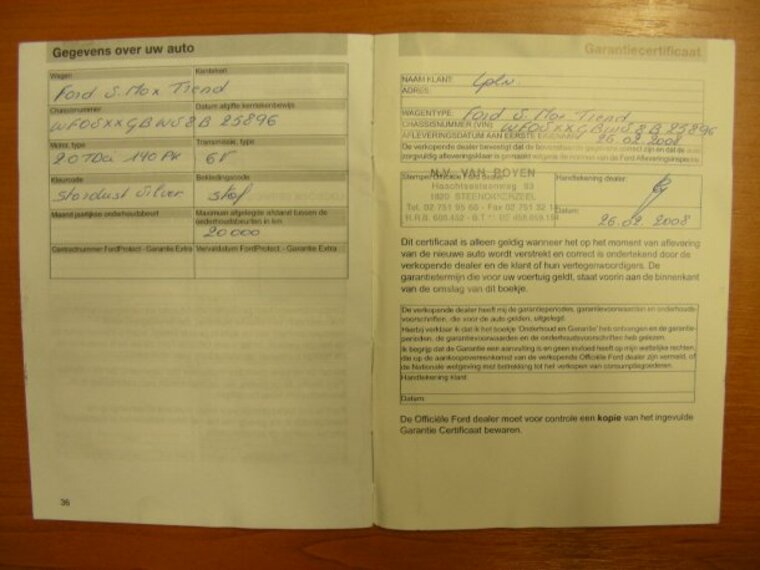 Gegevens over uw auto
Wagen
Kenteken
Ford S.Max Trend
Chassisnummer
Datum afgifte kentekenbewijs
WF0SXXGBWS8B 25896
Motor, type
Transmissie, type
2.0 TDCi 140 PK
6V
Kleurcode
Bekledingscode
Stardust Silver
stof
Maand jaarlijkse onderhoudsbeurt
Maximum afgelegde afstand tussen de
onderhoudsbeurten in km
20 000
Contractnummer FordProtect - Garantie Extra
Vervaldatum FordProtect - Garantie Extra
36
Garantiecertificaat
NAAM KLANT:
ADRES:
WAGENTYPE: Ford S.Max Trend
CHASSISNUMMER (VIN): WF0SXXGBWS8B 25896
AFLEVERINGSDATUM AAN EERSTE EIGENAAR: 26.02.2008
De verkopende dealer bevestigt dat de bovenstaande gegevens correct zijn en dat de auto
zorgvuldig afleveringsklaar is gemaakt volgens de normen van de Ford Afleveringsinspectie.
Stempel Officiële Ford dealer
N.V. VAN BOVEN
Haachtsesteenweg 93
1820 STEENOKKERZEEL
Tel. 02 751 95 60 - Fax 02 751 32 14
Handtekening dealer:
Datum:
26.02.2008
Dit certificaat is alleen geldig wanneer het op het moment van aflevering
van de nieuwe auto wordt verstrekt en correct is ondertekend door de
verkopende dealer en de klant of hun vertegenwoordigers. De
garantietermijn die voor uw voertuig geldt, staat voorin aan de binnenkant
van de omslag van dit boekje.
De verkopende dealer heeft mij de garantieperiodes, garantievoorwaarden en onderhouds-
voorschriften, die voor de auto gelden, uitgelegd.
Hierbij verklaar ik dat ik het boekje 'Onderhoud en Garantie' heb ontvangen en de garantie-
perioden, de garantievoorwaarden en de onderhoudsvoorschriften heb gelezen.
Ik begrijp dat de Garantie een aanvulling is en geen invloed heeft op mijn wettelijke rechten,
die op de aankoopovereenkomst van de verkopende Officiële Ford dealer zijn vermeld, of
de Nationale wetgeving met betrekking tot het verkopen van consumptiegoederen.
Handtekening klant
Datum:
De Officiële Ford dealer moet voor controle een kopie van het ingevulde
Garantie Certificaat bewaren.